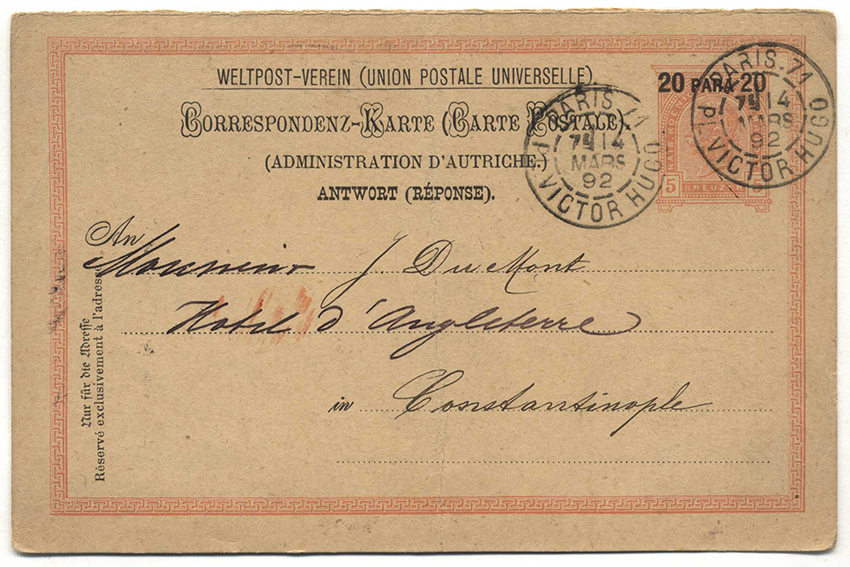 WELTPOST-VEREIN (UNION POSTALE UNIVERSELLE).
CORRESPONDENZ-KARTE (CARTE POSTALE).
(ADMINISTRATION D'AUTRICHE.)
ANTWORT (RÉPONSE).
20 PARA 20
5 KREUZ
PARIS-71
7E 14
MARS
92
PL. VICTOR HUGO
PARIS-71
7E 14
MARS
92
PL. VICTOR HUGO
An
Monsieur J Du Mont
Hotel d'Angleterre
in Constantinople
Nur für die Adresse
Réservé exclusivement à l'adresse